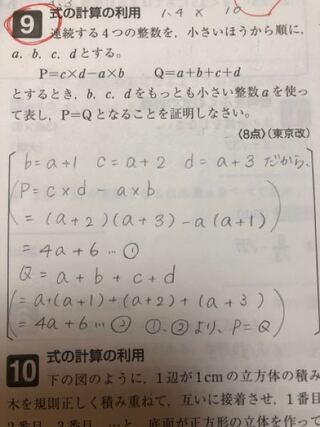 1.4 × 10
9 式の計算の利用
連続する4つの整数を，小さいほうから順に，
a，b，c，dとする。
P=c×d−a×b　Q=a+b+c+d
とするとき，b，c，dをもっとも小さい整数aを使っ
て表し，P=Qとなることを証明しなさい。
〈8点〉(東京改)
b=a+1　c=a+2　d=a+3 だから、
P=c×d−a×b
=(a+2)(a+3)−a(a+1)
=4a+6 … ①
Q=a+b+c+d
=a+(a+1)+(a+2)+(a+3)
=4a+6 … ②　①、②より、P=Q
10 式の計算の利用
下の図のように，1辺が1cmの立方体の積み
木を規則正しく積み重ねて，互いに接着させ，1番目